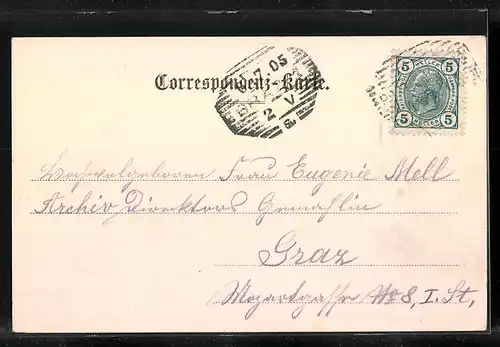 Correspondenz-Karte.
7 05
2
V
5 5
HELLER
5 5
Hochwolgeboren Frau Eugenie Mell
Archiv Direktors Gemahlin
Graz
Mozartgasse No 8, I. St,